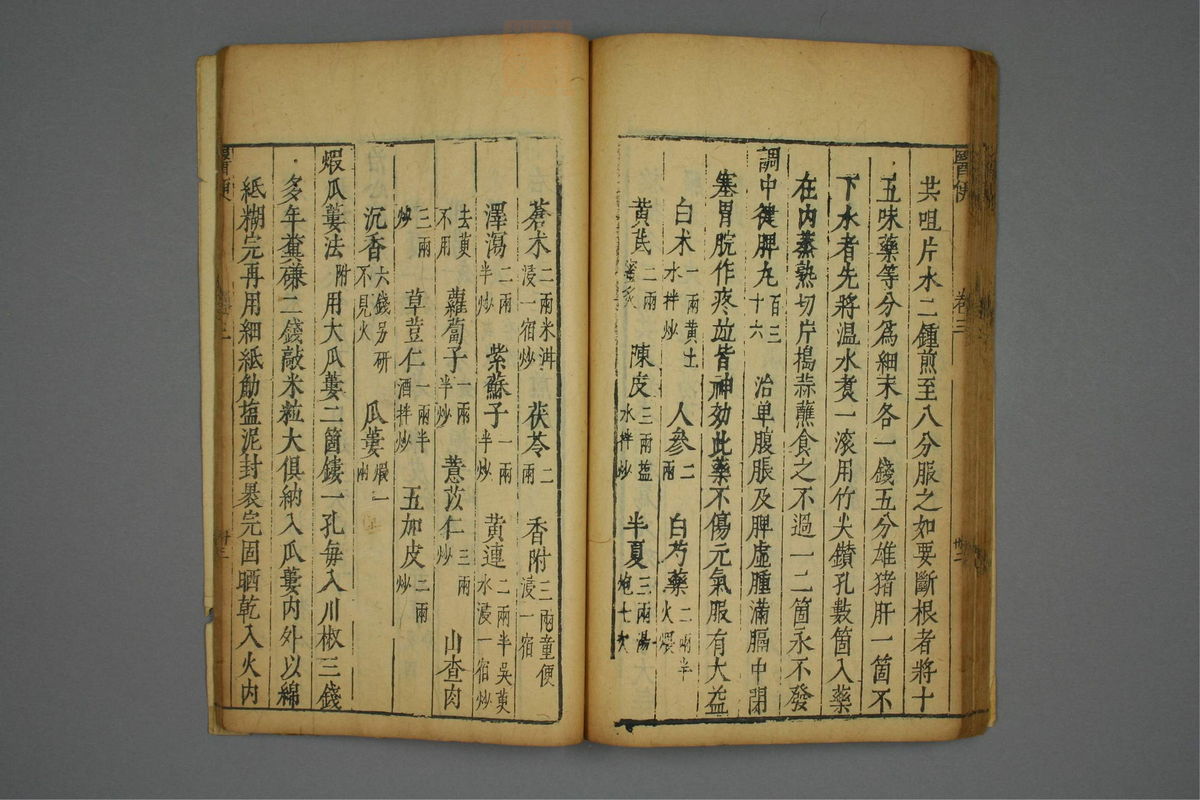 醫便 卷三
共咀片水二鍾煎至八分服之如要斷根者將十
五味藥等分為細末各一錢五分雄猪肝一箇不
下水者先將温水煑一滚用竹尖鑚孔數箇入藥
在内蒸熟切片搗蒜蘸食之不過一二箇永不發
調中健脾丸 百三十六 治单腹脹及脾虛腫滿膈中閉
塞胃脘作疼並皆神効此藥不傷元氣服有大益
白术 一兩黄土水拌炒 人參 二兩 白芍藥 二兩半火煨
黄芪 二兩蜜炙 陳皮 三兩盐水拌炒 半夏 三兩湯炮七次
蒼术 二兩米泔浸一宿炒 茯苓 二兩 香附 三兩童便浸一宿
澤瀉 二兩半炒 紫蘇子 一兩半炒 黄連 二兩半吴茰水浸一宿炒
去茰不用 蘿蔔子 一兩半炒 薏苡仁 三兩炒 山查肉
三兩炒 草荳仁 一兩半酒拌炒 五加皮 二兩炒
沉香 六錢另研不見火 瓜蔞 煅一兩
煆瓜蔞法 附 用大瓜蔞二箇鏤一孔每入川椒三錢
多年糞磏二錢敲米粒大俱納入瓜蔞内外以綿
紙糊完再用細紙觔塩泥封褁完固晒乾入火内
醫便